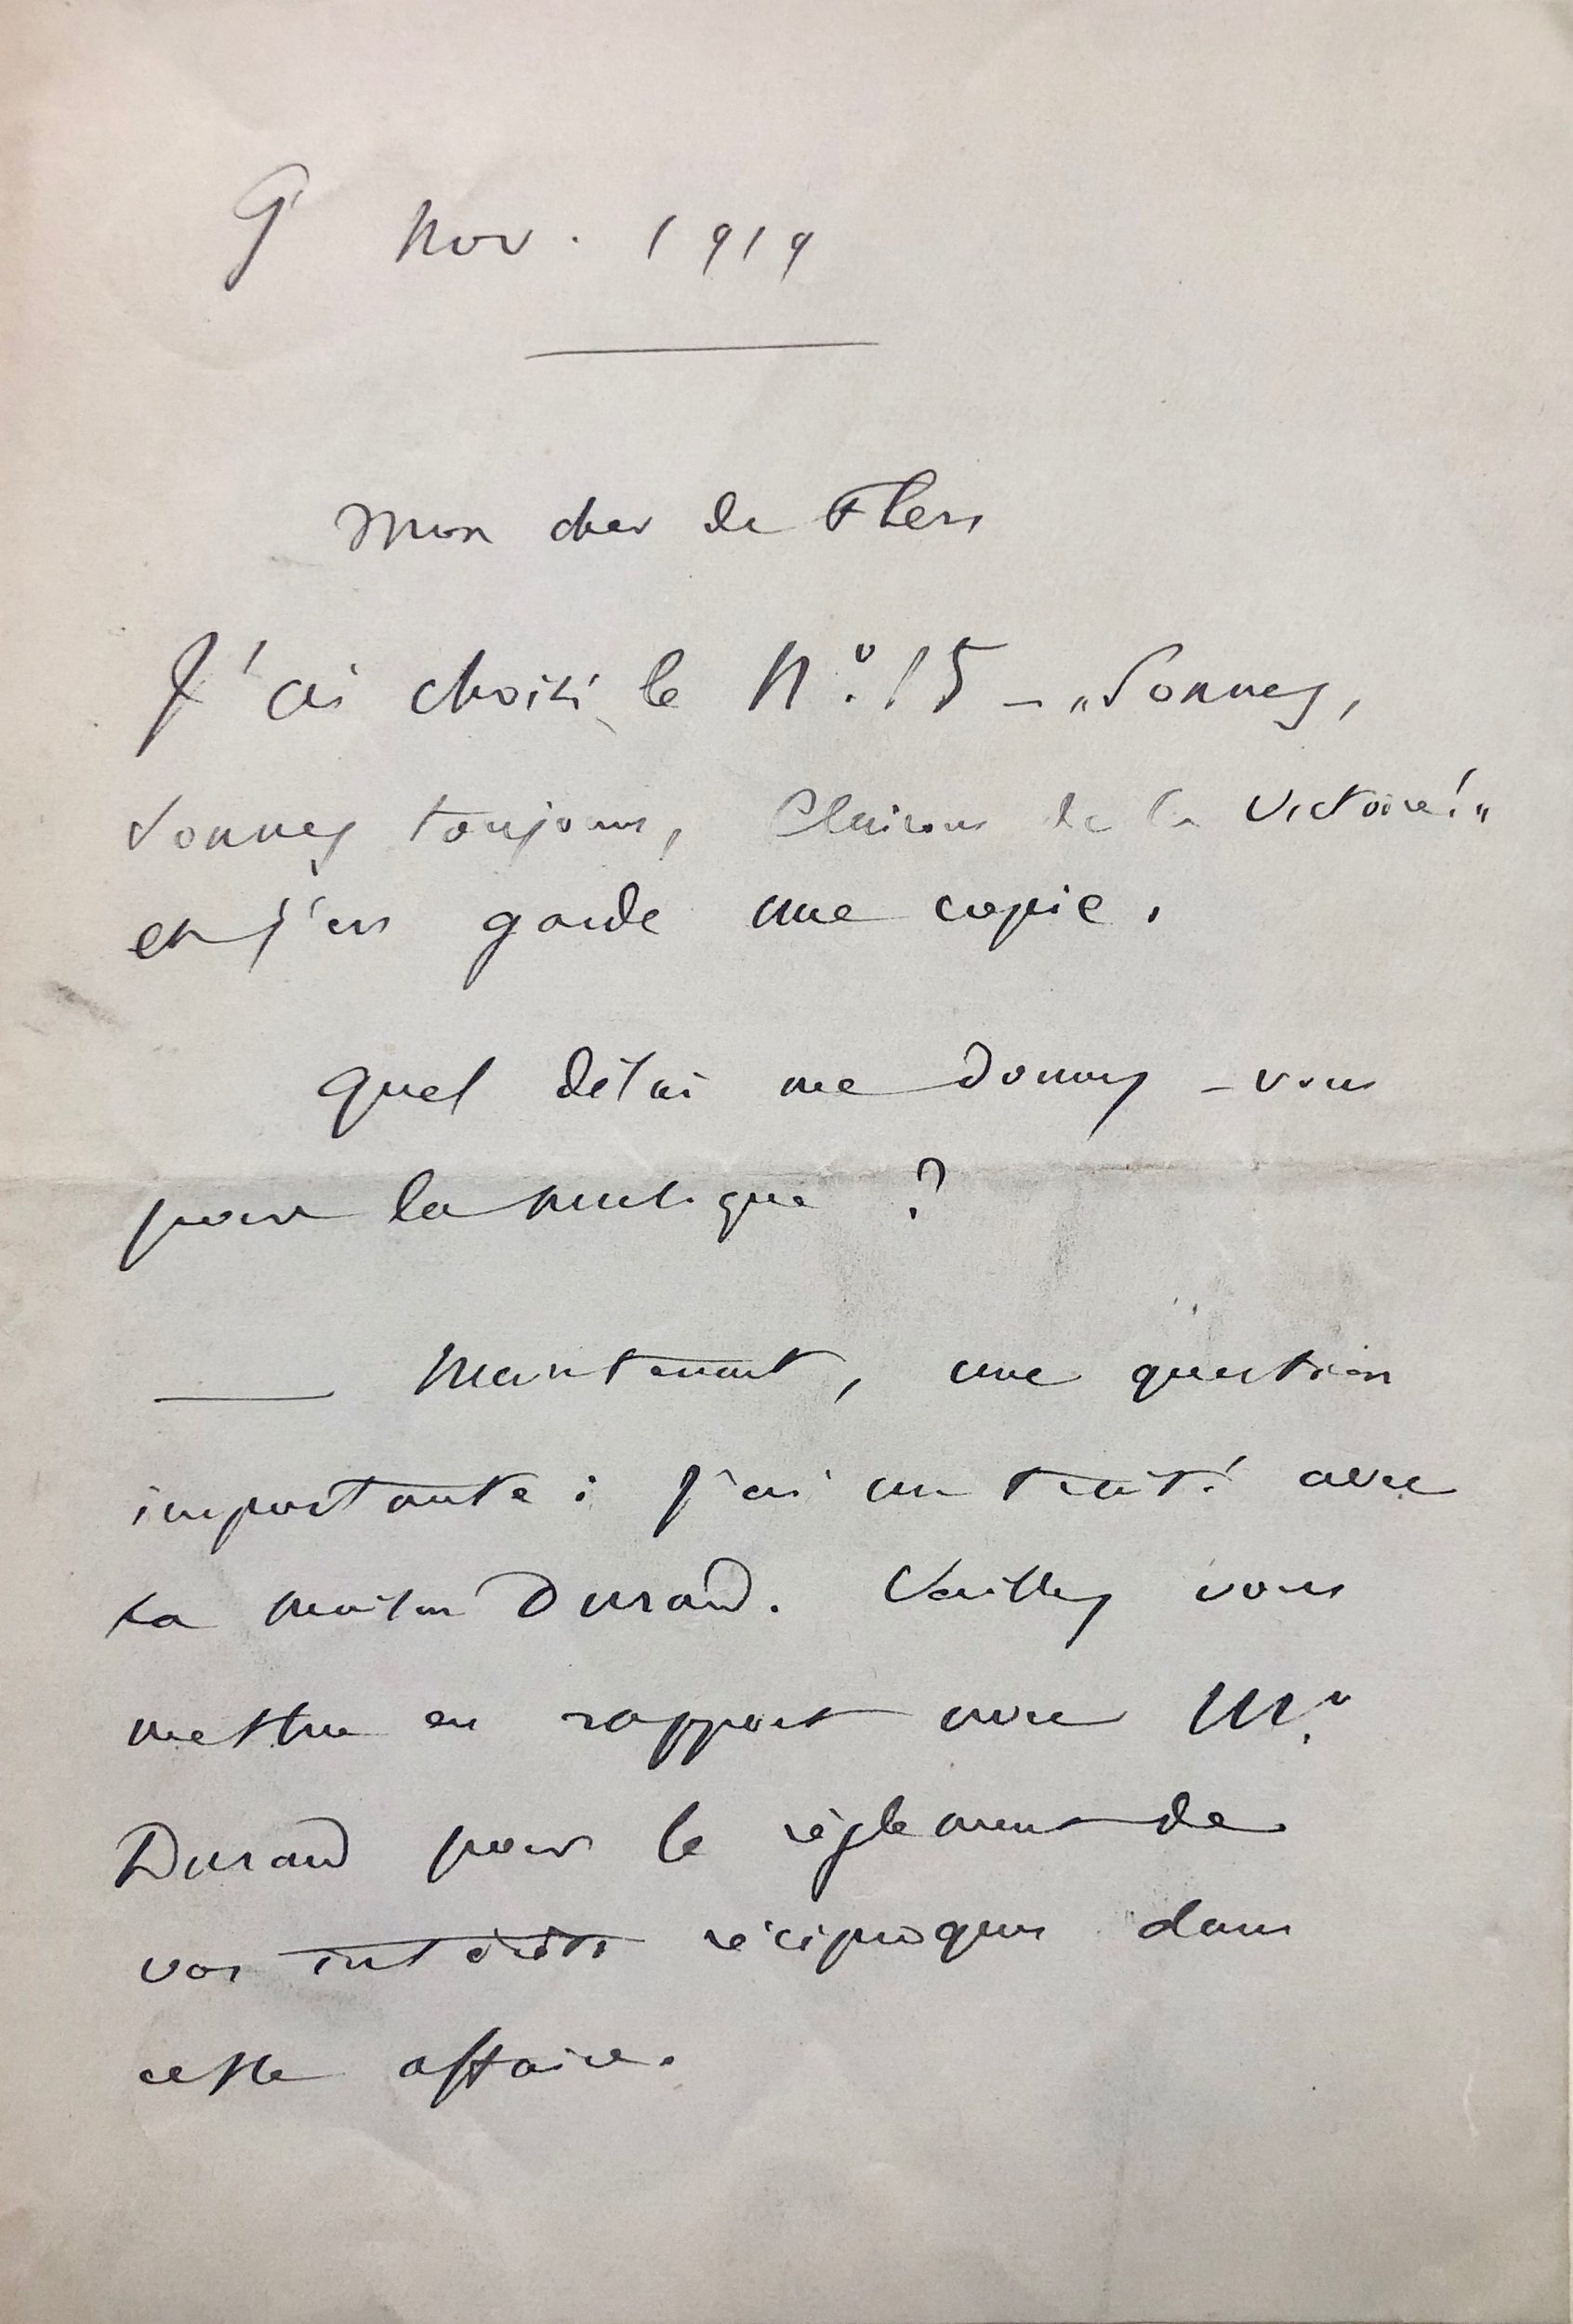 9 Nov. 1919
Mon cher de Flers
J'ai choisi le N°. 15 – „Sonnez,
Sonnez toujours, Clairons de la Victoire!„
et j'en garde une copie.
Quel délai me donnez-vous
pour la musique ?
— Maintenant, une question
importante : j'ai un traité avec
la maison Durand. Veuillez vous
mettre en rapport avec Mr.
Durand pour le règlement de
vos intérêts réciproques dans
cette affaire.